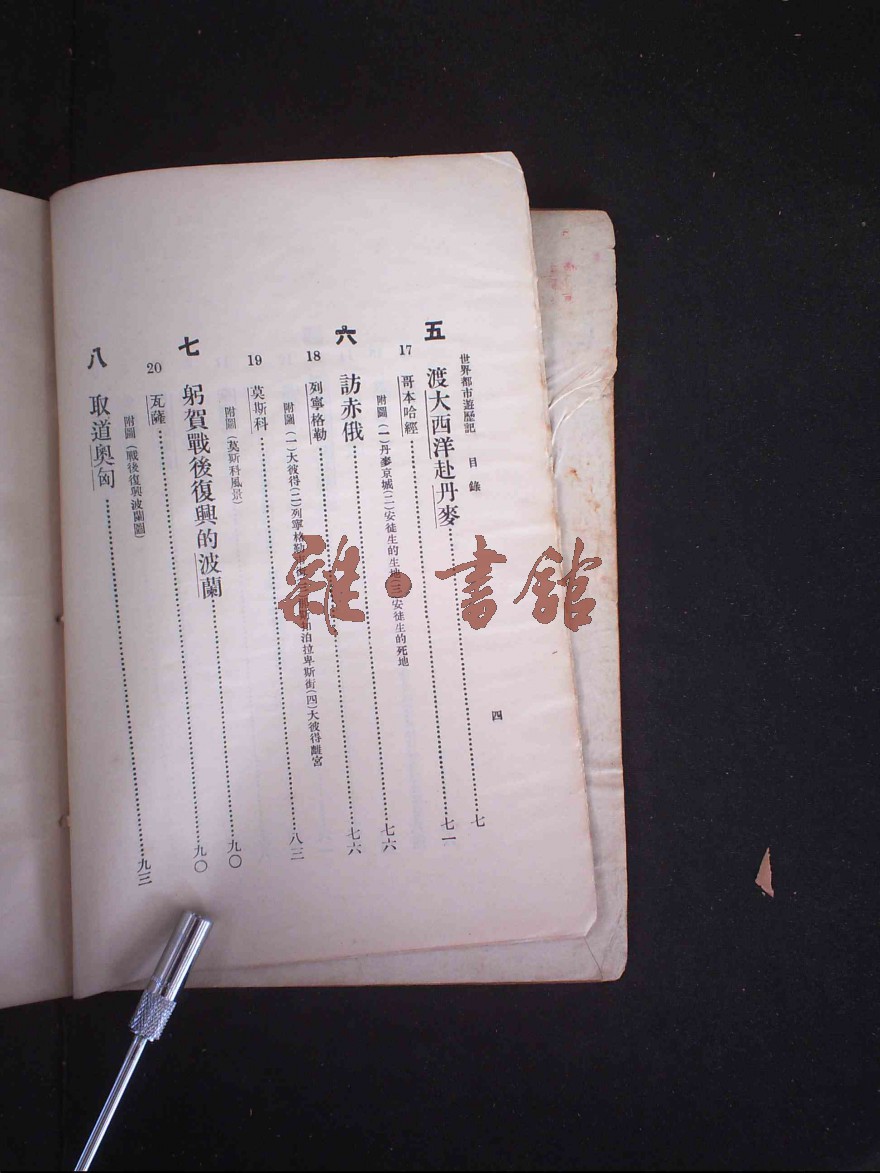 世界都市遊歷記 目錄 四
五 渡大西洋赴丹麥 七一
17 哥本哈經 七一
附圖(一)丹麥京城(二)安徒生的生地(三)安徒生的死地
六 訪赤俄 七六
18 列寧格勒 七六
附圖(一)大彼得(二)列寧格勒 泊拉卑斯街(四)大彼得離宮
19 莫斯科 八三
附圖(莫斯科風景)
七 躬賀戰後復興的波蘭 九〇
20 瓦薩 九〇
附圖(戰後復興波蘭圖)
八 取道奧匈 九三
雜·書館